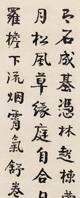 石成基憑林起棟
月松風草緣庭自合
羅檐下流烟霄氣舒卷